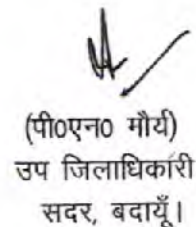 (पी0एन0 मौर्य)
उप जिलाधिकारी
सदर, बदायूँ।